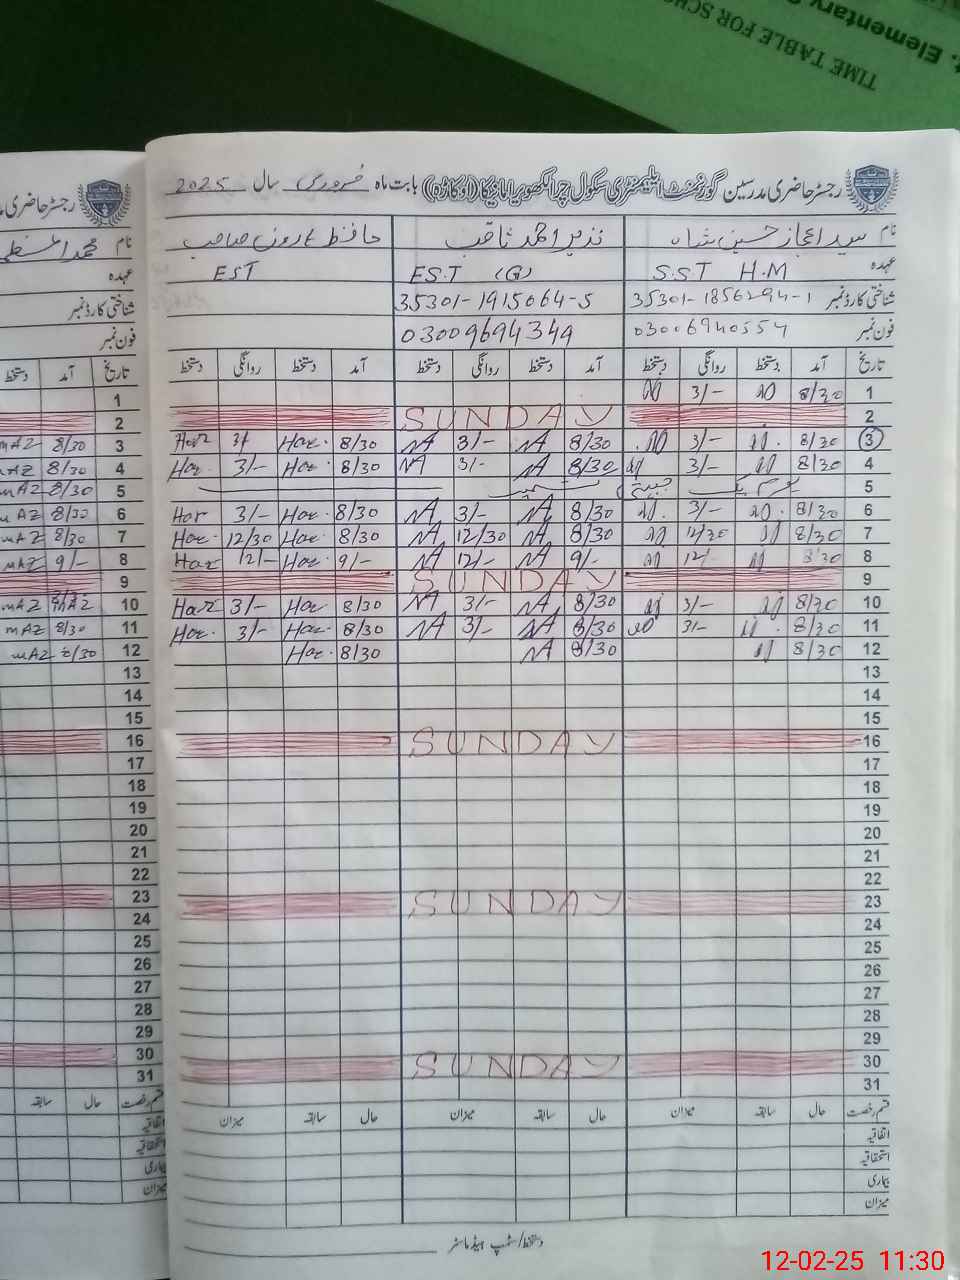 TIME TABLE FOR SCHO
t. Elementary S
رجسٹر حاضری مدرسین گورنمنٹ ایلیمنٹری سکول چراغ لکھویرا مانیکا (اوکاڑہ) بابت ماہ فروری سال 2025
نام سید اعجاز حسین شاہ نذیر احمد ثاقب حافظ ہارون صاحب
عہدہ S.S.T H.M ES.T (G) EST
شناختی کارڈ نمبر 35301-1856294-1 35301-1915064-5
فون نمبر 03006940554 03009694349
تاریخ آمد دستخط روانگی دستخط آمد دستخط روانگی دستخط آمد دستخط روانگی دستخط
1 8/30 3/-
2 SUNDAY
3 8/30 3/- 8/30 NA 3/- NA 8/30 Har. 3/ Har
4 8/30 3/- 8/30 NA 3/- NA 8/30 Har 3/- Har
5 یوم یکجہتی کشمیر
6 8/30 3/- 8/30 NA 3/- NA 8/30 Har. 3/- Har
7 8/30 12/30 8/30 NA 12/30 NA 8/30 Har. 12/30 Har.
8 8/30 12/- 9/- NA 12/- NA 9/- Har. 12/- Har
9 SUNDAY
10 8/30 3/- 8/30 NA 3/- NA 8/30 Har 3/- Har
11 8/30 3/- 8/30 NA 3/- NA 8/30 Har. 3/- Har.
12 8/30 8/30 NA 8/30 Har.
13
14
15
16 SUNDAY
17
18
19
20
21
22
23 SUNDAY
24
25
26
27
28
29
30 SUNDAY
31
قسم رخصت حال سابقہ میزان حال سابقہ میزان حال سابقہ میزان
اتفاقیہ
استحقاقیہ
بیماری
میزان
دستخط/سٹمپ ہیڈماسٹر
رجسٹر حاضری
نام محمد
عہدہ
شناختی کارڈ نمبر
فون نمبر
تاریخ آمد دستخط
1
2
3 8/30 mAZ
4 8/30 mAZ
5 8/30 mAZ
6 8/30 mAZ
7 8/30 mAZ
8 9/- mAZ
9
10 mAZ mAZ
11 8/30 mAZ
12 8/30 mAZ
13
14
15
16
17
18
19
20
21
22
23
24
25
26
27
28
29
30
31
قسم رخصت حال سابقہ
اتفاقیہ
استحقاقیہ
بیماری
میزان
12-02-25 11:30